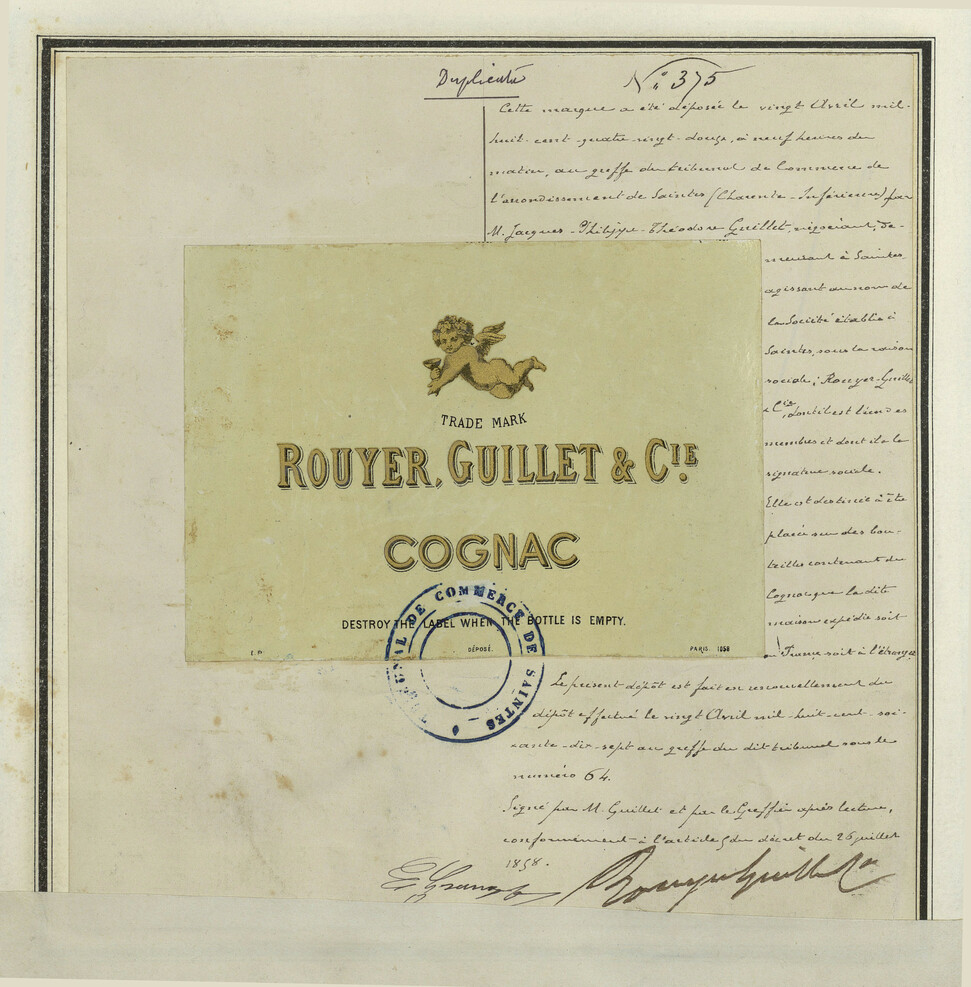 Duplicata
N° 375
Cette marque a été déposée le vingt Avril mil-
huit-cent-quatre-vingt-douze, à neuf heures du
matin, au greffe du tribunal de Commerce de
l'arrondissement de Saintes (Charente-Inférieure) par
M. Jacques-Philippe-Théodore Guillet, négociant, de-
meurant à Saintes,
agissant au nom de
la Société établie à
Saintes, sous la raison
sociale; Rouyer-Guillet
& Cie, dont il est l'un des
membres et dont il a la
signature sociale.
Elle est destinée à être
placée sur des bou-
teilles contenant du
Cognac que la dite
maison expédie soit
en France soit à l'étranger
TRADE MARK
ROUYER, GUILLET & CIE.
COGNAC
DESTROY THE LABEL WHEN THE BOTTLE IS EMPTY.
DÉPOSÉ.
PARIS. 1858
TRIBUNAL DE COMMERCE DE SAINTES
Le présent dépôt est fait en renouvellement du
dépôt effectué le vingt Avril mil-huit-cent-soi-
xante-dix-sept au greffe du dit tribunal sous le
numéro 64.
Signé par M. Guillet et par le Greffier après lecture,
conformément à l'article 5 du décret du 26 juillet
1858.
Rouyer Guillet & Cie